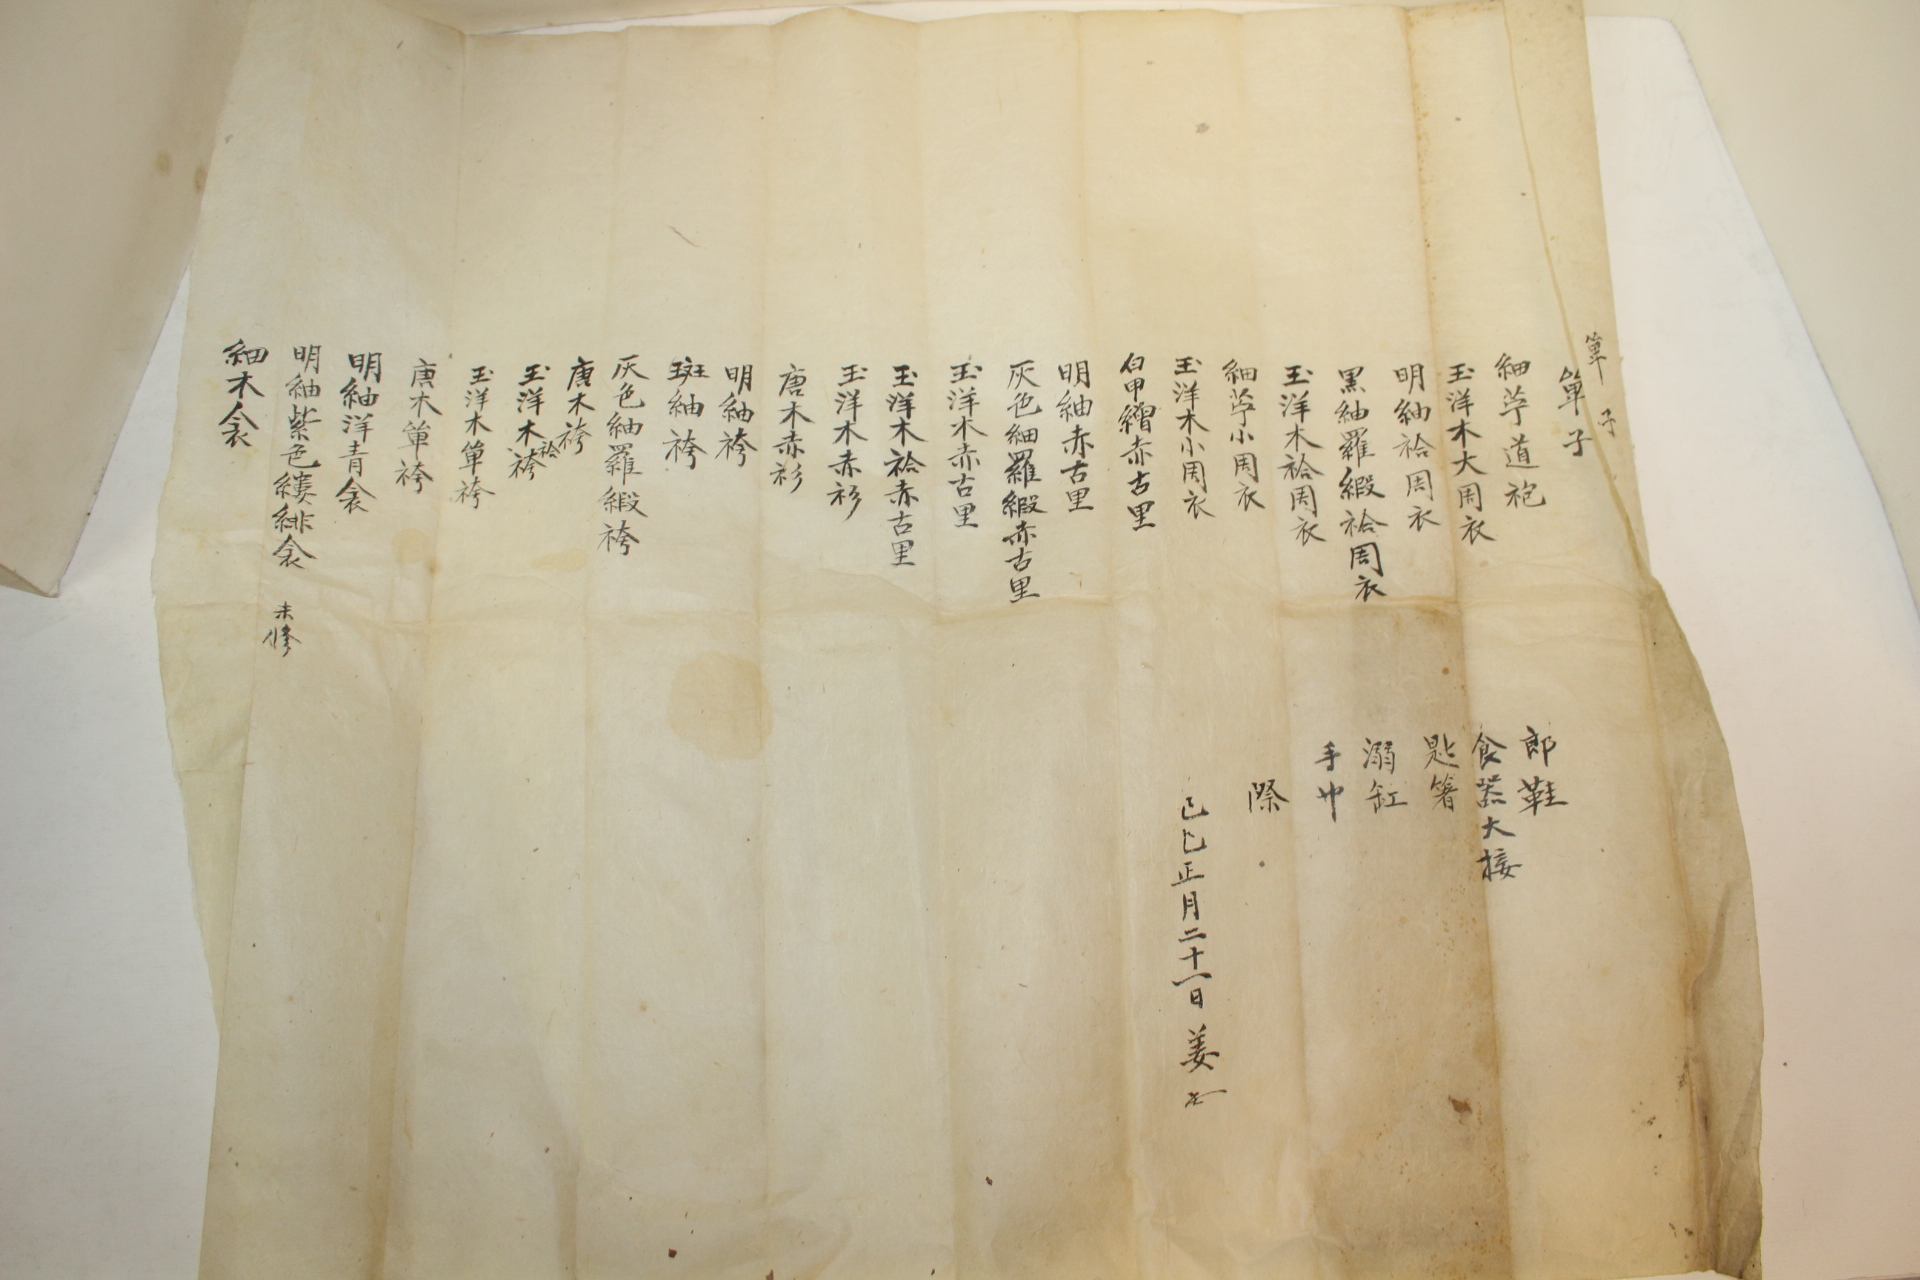 單子
單子
細苧道袍
玉洋木大周衣
明紬袷周衣
黑紬羅緞袷周衣
玉洋木袷周衣
細苧小周衣
玉洋木小周衣
白甲繒赤古里
明紬赤古里
灰色細羅緞赤古里
玉洋木赤古里
玉洋木袷赤古里
玉洋木赤衫
唐木赤衫
明紬袴
斑紬袴
灰色紬羅緞袴
唐木袴
玉洋木袷袴
玉洋木單袴
唐木單袴
明紬洋青衾
明紬紫色縷緋衾 未修
細木衾
郎鞋
食器大接
匙箸
溺缸
手巾
際
己巳正月二十一日 姜